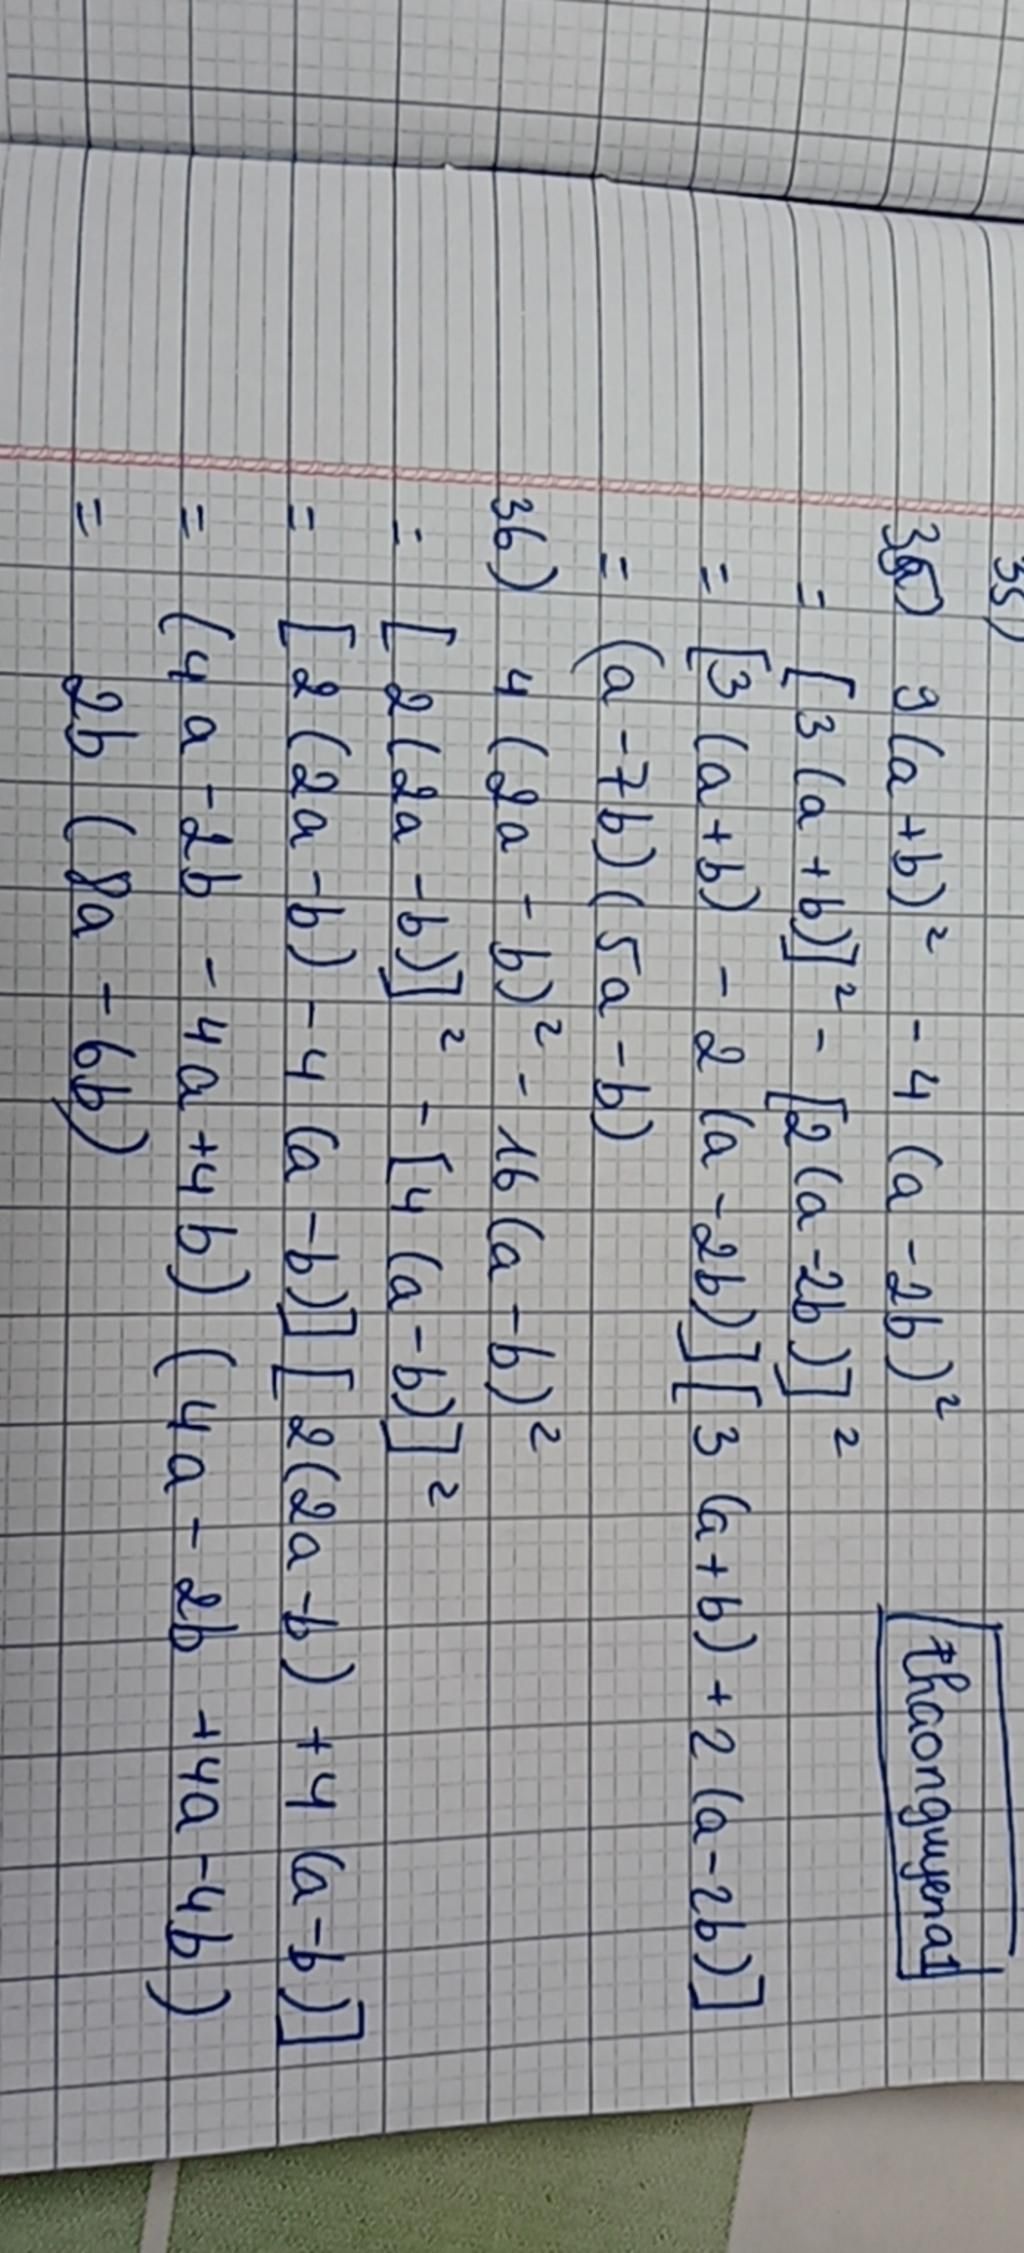 35)
9(a+b)² - 4(a-2b)²
= [3(a+b)]² - [2(a-2b)]²
= [3(a+b) - 2(a-2b)][3(a+b)+2(a-2b)]
= (a-7b)(5a-b)
36) 4(2a-b)² - 16(a-b)²
= [2(2a-b)]² - [4(a-b)]²
= [2(2a-b)-4(a-b)][2(2a-b)+4(a-b)]
= (4a-2b-4a+4b)(4a-2b+4a-4b)
= 2b(8a-6b)
thaonguyena1